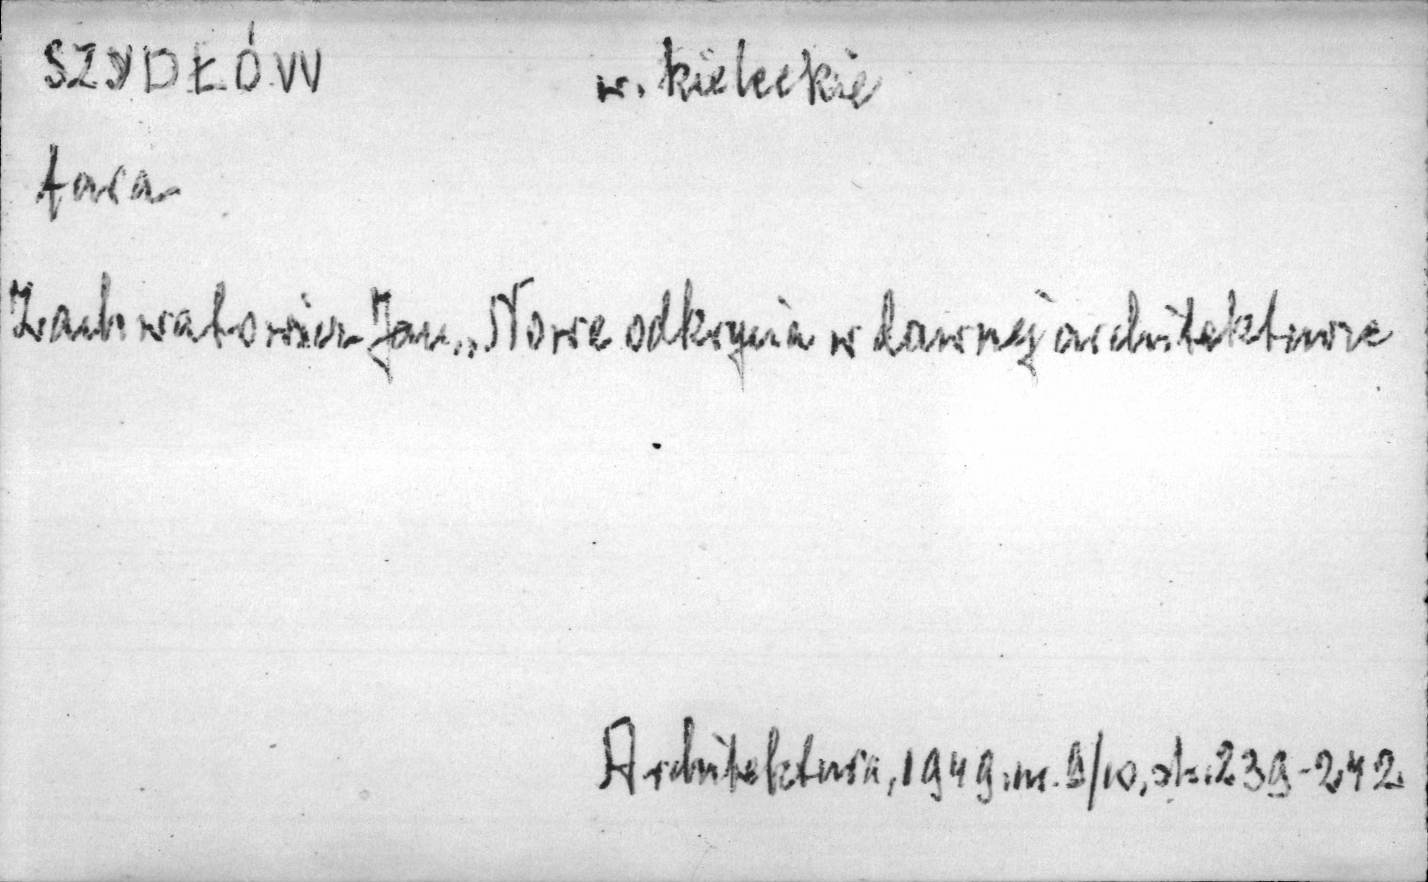 SZYDŁÓW w. kieleckie
fara
Zachwatowicz Jan „Nowe odkrycia w dawnej architekturze
Architektura, 1949, nr. 9/10, str. 239-242.